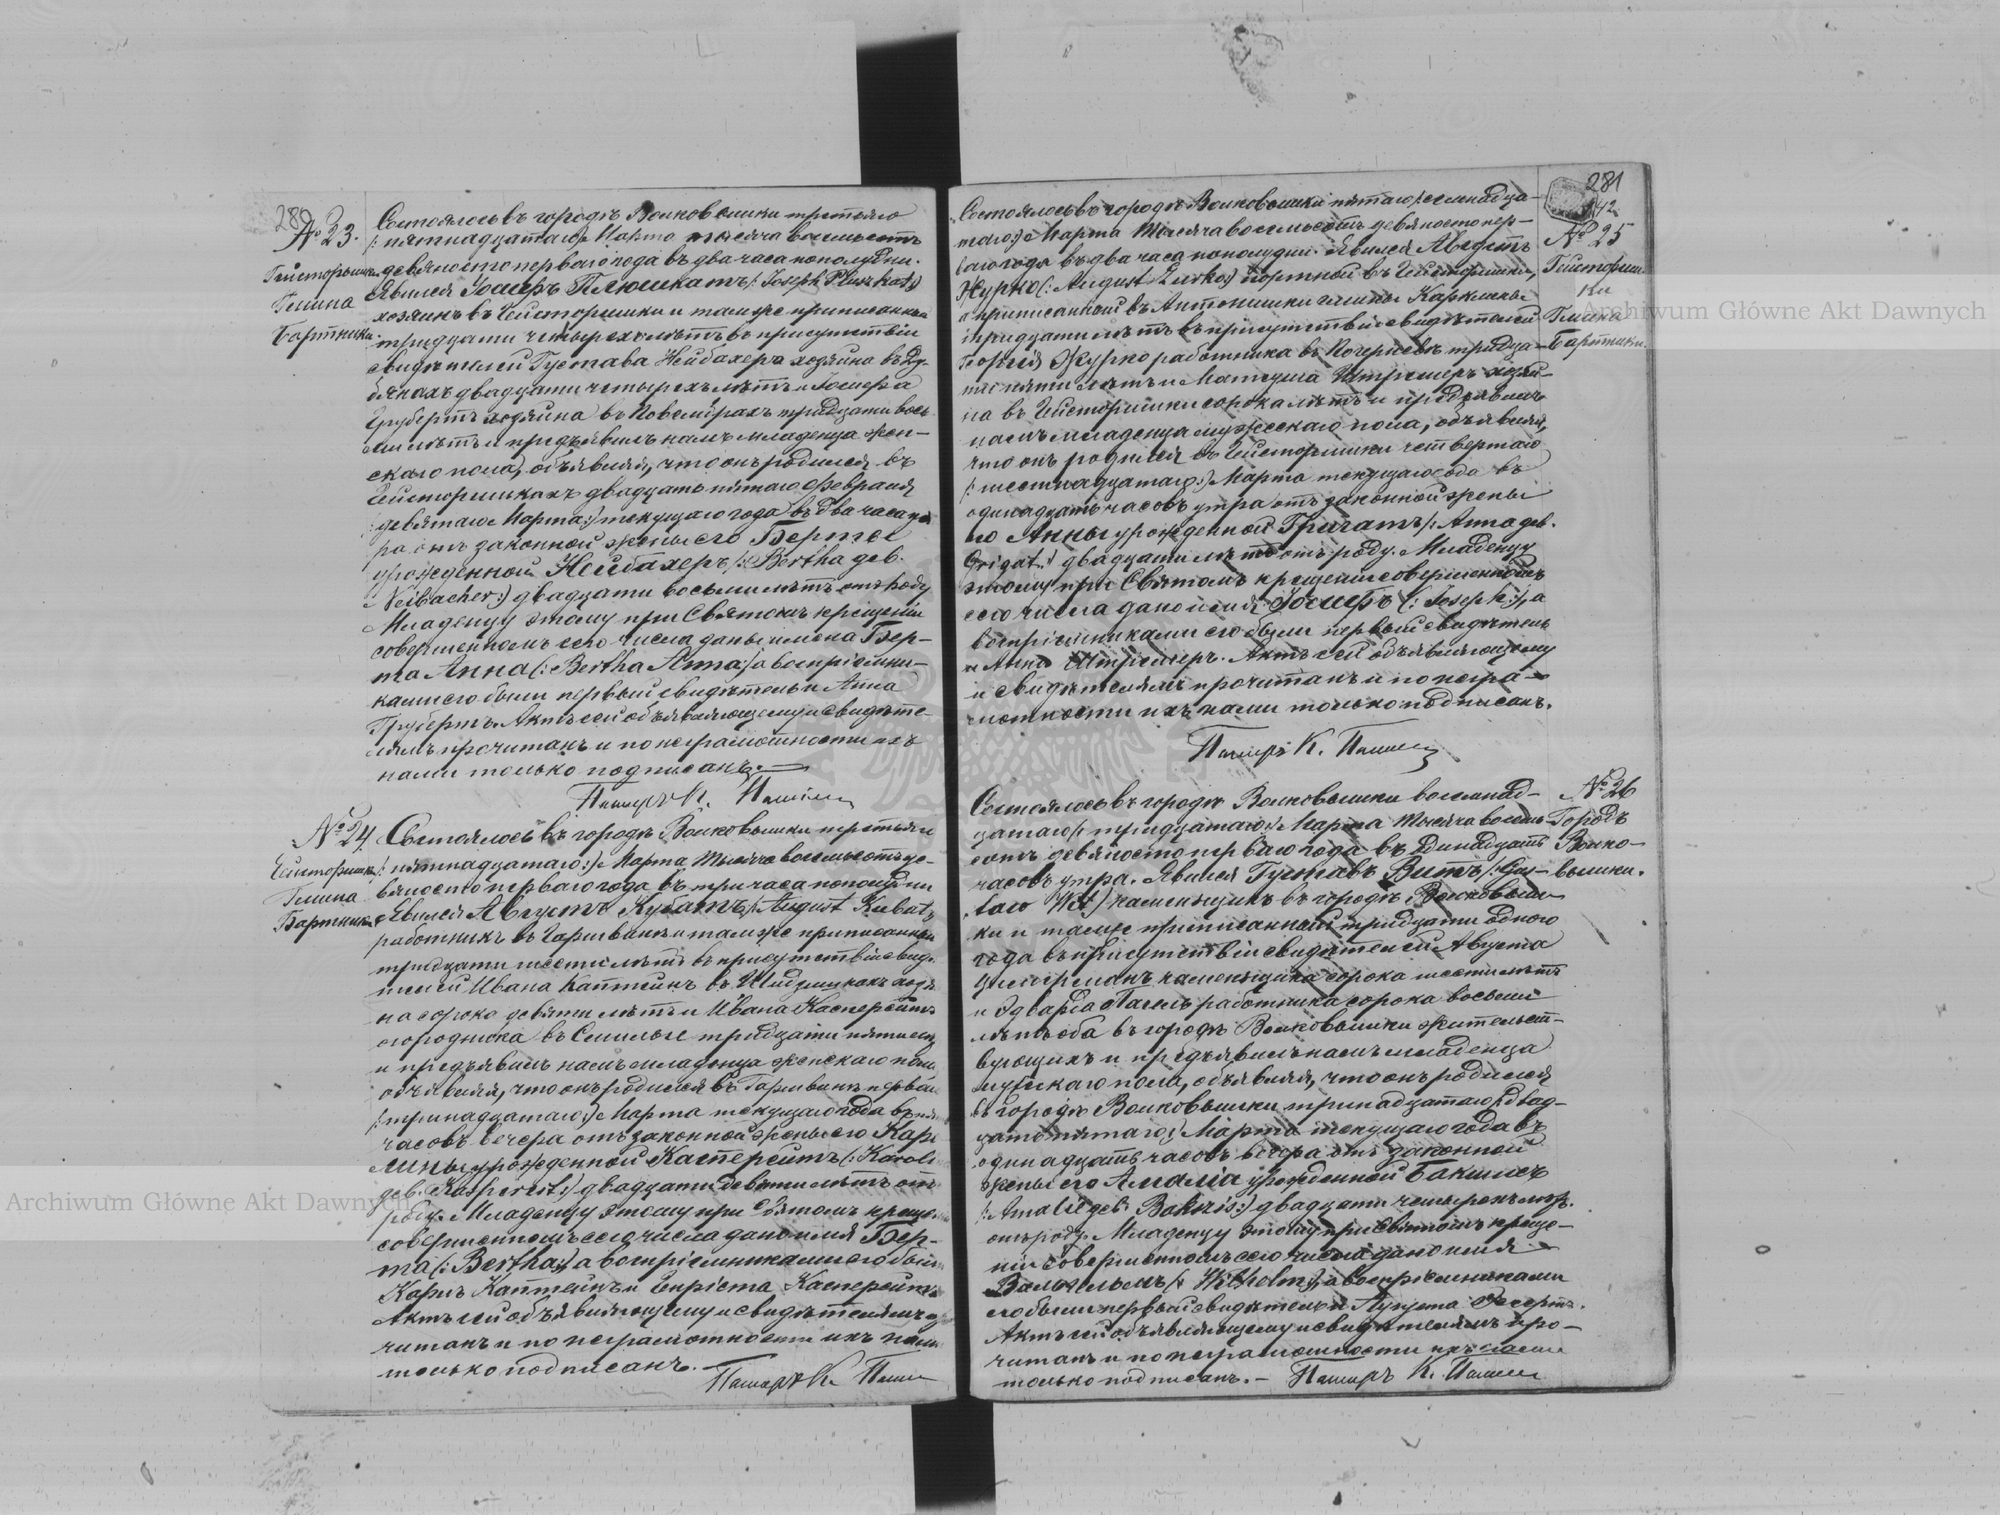 280
№ 23.
Гейсторишки
Гмина
Бартники
Состоялось въ городѣ Волковышки третьяго
/: пятнадцатаго :/ Марта тысяча восемьсотъ
девяносто перваго года въ два часа пополудни.
Явился Іосифъ Плюшкатъ /: Joseph Pluszkat :/
хозяинъ въ Гейсторишки и тамже приписанный
тридцати четырехъ лѣтъ въ присутствіи
свидѣтелей Густава Нейбахеръ хозяина въ
двадцати четырехъ лѣтъ и Іосифа
Грубертъ хозяина въ тридцати вось
ми лѣтъ и предъявилъ намъ младенца жен-
скаго пола, объявляя, что онъ родился въ
Гейсторишкахъ двадцать пятаго Февраля
/: девятаго Марта :/ текущаго года въ два часа ут
ра отъ законной жены его Берты
урожденной Нейбахеръ /: Bertha geb.
Neibacher :/ двадцати восьми лѣтъ отъ роду
Младенцу этому при Святомъ крещеніи
совершенномъ сего числа даны имена Бер-
та Анна /: Bertha Anna :/ а воспріемни-
ками его были первый свидѣтель и Анна
Грубертъ. Актъ сей объявляющему и свидѣте-
лямъ прочитанъ и по неграмотности ихъ
нами только подписанъ.
Пасторъ К.
№ 24
Гейсторишки
Гмина
Бартники
Состоялось въ городѣ Волковышки третьяго
/: пятнадцатаго :/ Марта тысяча восемьсотъ де-
вяносто перваго года въ три часа пополудни
Явился Августъ Кубатъ /: August Kubat :/
работникъ въ и тамже приписанный
тридцати шести лѣтъ въ присутствіи свидѣ
телей Ивана Каптейнъ въ хозяи
на сорока девяти лѣтъ и Ивана Касперейтъ
огородника въ тридцати пяти лѣтъ
и предъявилъ намъ младенца женскаго пола
объявляя, что онъ родился въ перваго
/: тринадцатаго :/ Марта текущаго года въ
часовъ вечера отъ законной жены его Каро
лины урожденной Касперейтъ /: Karoli
geb. Kaspereit :/ двадцати девяти лѣтъ отъ
роду. Младенцу этому при Святомъ креще
совершенномъ сего числа дано имя Бер-
та /: Bertha :/ а воспріемниками его были
Карлъ Каптейнъ и Енріета Касперейтъ
Актъ сей объявляющему и свидѣтелямъ про
читанъ и по неграмотности ихъ нами
только подписанъ.
Пасторъ К.
281
142
№ 25
Гейсториш
ки
Гмина
Бартники
Состоялось въ городѣ Волковышки пятаго /: семнадца-
таго :/ Марта тысяча восемьсотъ девяносто пер-
ваго года въ два часа пополудни. Явился Августъ
Журко /: August Zurko :/ портной въ Гейсторишки,
а приписанный въ Антонишки гмины
тридцати лѣтъ въ присутствіи свидѣтелей
Георгія Журко работника въ тридца-
ти пяти лѣтъ и хозяи-
на въ Гейсторишки сорока лѣтъ и предъявилъ
намъ младенца мужескаго пола, объявляя,
что онъ родился въ Гейсторишки четвертаго
/: шестнадцатаго :/ Марта текущаго года въ
одинадцать часовъ утра отъ законной жены
его Анны урожденной Григатъ /: Anna geb.
Grigat :/ двадцати лѣтъ отъ роду. Младенцу
этому при Святомъ крещеніи совершенномъ
сего числа дано имя Іосифъ /: Joseph :/, а
воспріемниками его были первый свидѣтель
и Анна Актъ сей объявляющему
и свидѣтелямъ прочитанъ и по негра-
мотности ихъ нами только подписанъ.
Пасторъ К.
№ 26
Городъ
Волко-
вышки.
Состоялось въ городѣ Волковышки восемнад-
цатаго /: тридцатаго :/ Марта тысяча восемь
сотъ девяносто перваго года въ
часовъ утра. Явился Густавъ Витъ /: Gus-
taw Wit :/ каменьщикъ въ городѣ Волковыш-
ки и тамже приписанный тридцати одного
года въ присутствіи свидѣтелей Августа
каменьщика сорока шести лѣтъ
и Эдварда работника сорока восьми
лѣтъ оба въ городѣ Волковышки жительст-
вующихъ и предъявилъ намъ младенца
мужескаго пола, объявляя, что онъ родился
въ городѣ Волковышки тринадцатаго /: двад-
цать пятаго :/ Марта текущаго года въ
одинадцать часовъ отъ законной
жены его Амалія урожденной
/: Amalie geb. :/ двадцати четырехъ лѣтъ
отъ роду. Младенцу этому при Святомъ креще-
ніи совершенномъ сего числа дано имя
Вильгельмъ /: Wilhelm :/ а воспріемниками
его были первый свидѣтель и Августа
Актъ сей объявляющему и свидѣтелямъ про-
читанъ и по неграмотности ихъ нами
только подписанъ. - Пасторъ К.
Archiwum Główne Akt Dawnych
Archiwum Główne Akt Dawnych